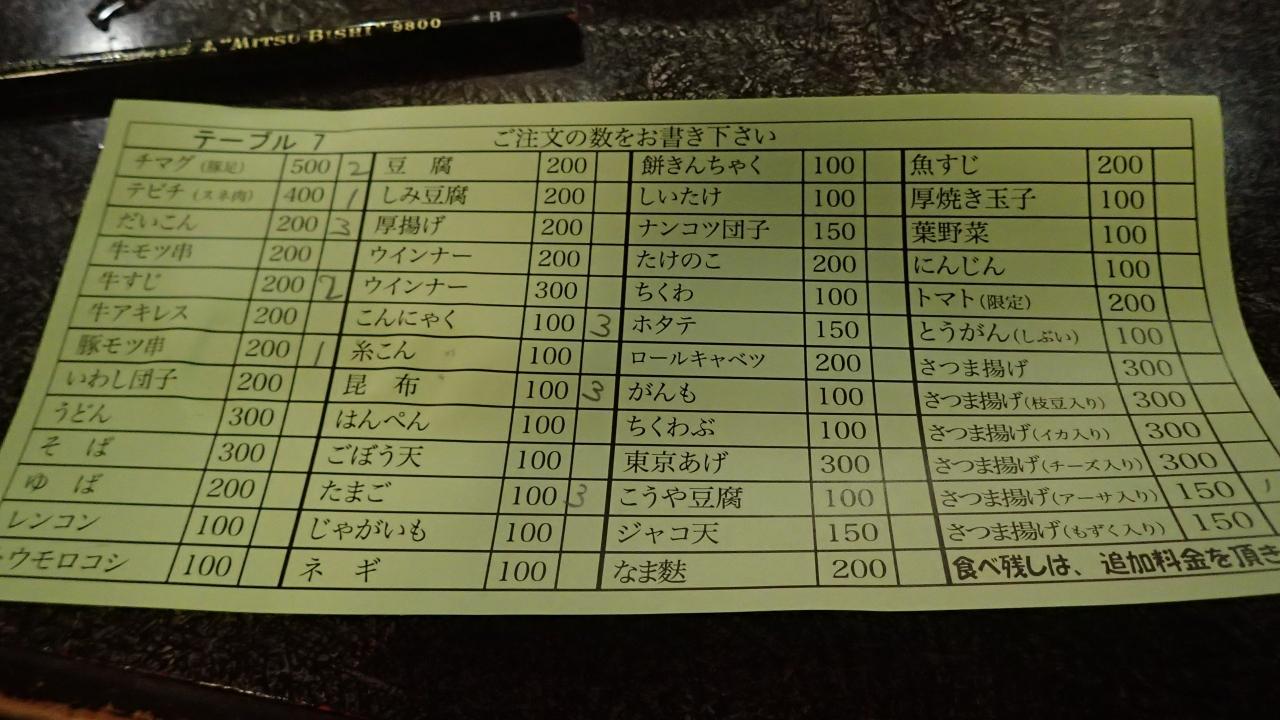 "MITSU-BISHI" 9800 B
テーブル 7 ご注文の数をお書き下さい
チマグ (豚足) 500 2 豆 腐 200 餅きんちゃく 100 魚すじ 200
テビチ (スネ肉) 400 1 しみ豆腐 200 しいたけ 100 厚焼き玉子 100
だいこん 200 3 厚揚げ 200 ナンコツ団子 150 葉野菜 100
牛モツ串 200 ウインナー 200 たけのこ 200 にんじん 100
牛すじ 200 2 ウインナー 300 ちくわ 100 トマト(限定) 200
牛アキレス 200 こんにゃく 100 3 ホタテ 150 とうがん(しぶい) 100
豚モツ串 200 1 糸こん 100 ロールキャベツ 200 さつま揚げ 300
いわし団子 200 昆 布 100 3 がんも 100 さつま揚げ(枝豆入り) 300
うどん 300 はんぺん 100 ちくわぶ 100 さつま揚げ(イカ入り) 300
そ ば 300 ごぼう天 100 東京あげ 300 さつま揚げ(チーズ入り) 300
ゆ ば 200 たまご 100 3 こうや豆腐 100 さつま揚げ(アーサ入り) 150 1
レンコン 100 じゃがいも 100 ジャコ天 150 さつま揚げ(もずく入り) 150
ウモロコシ 100 ネ ギ 100 なま麩 200 食べ残しは、追加料金を頂き